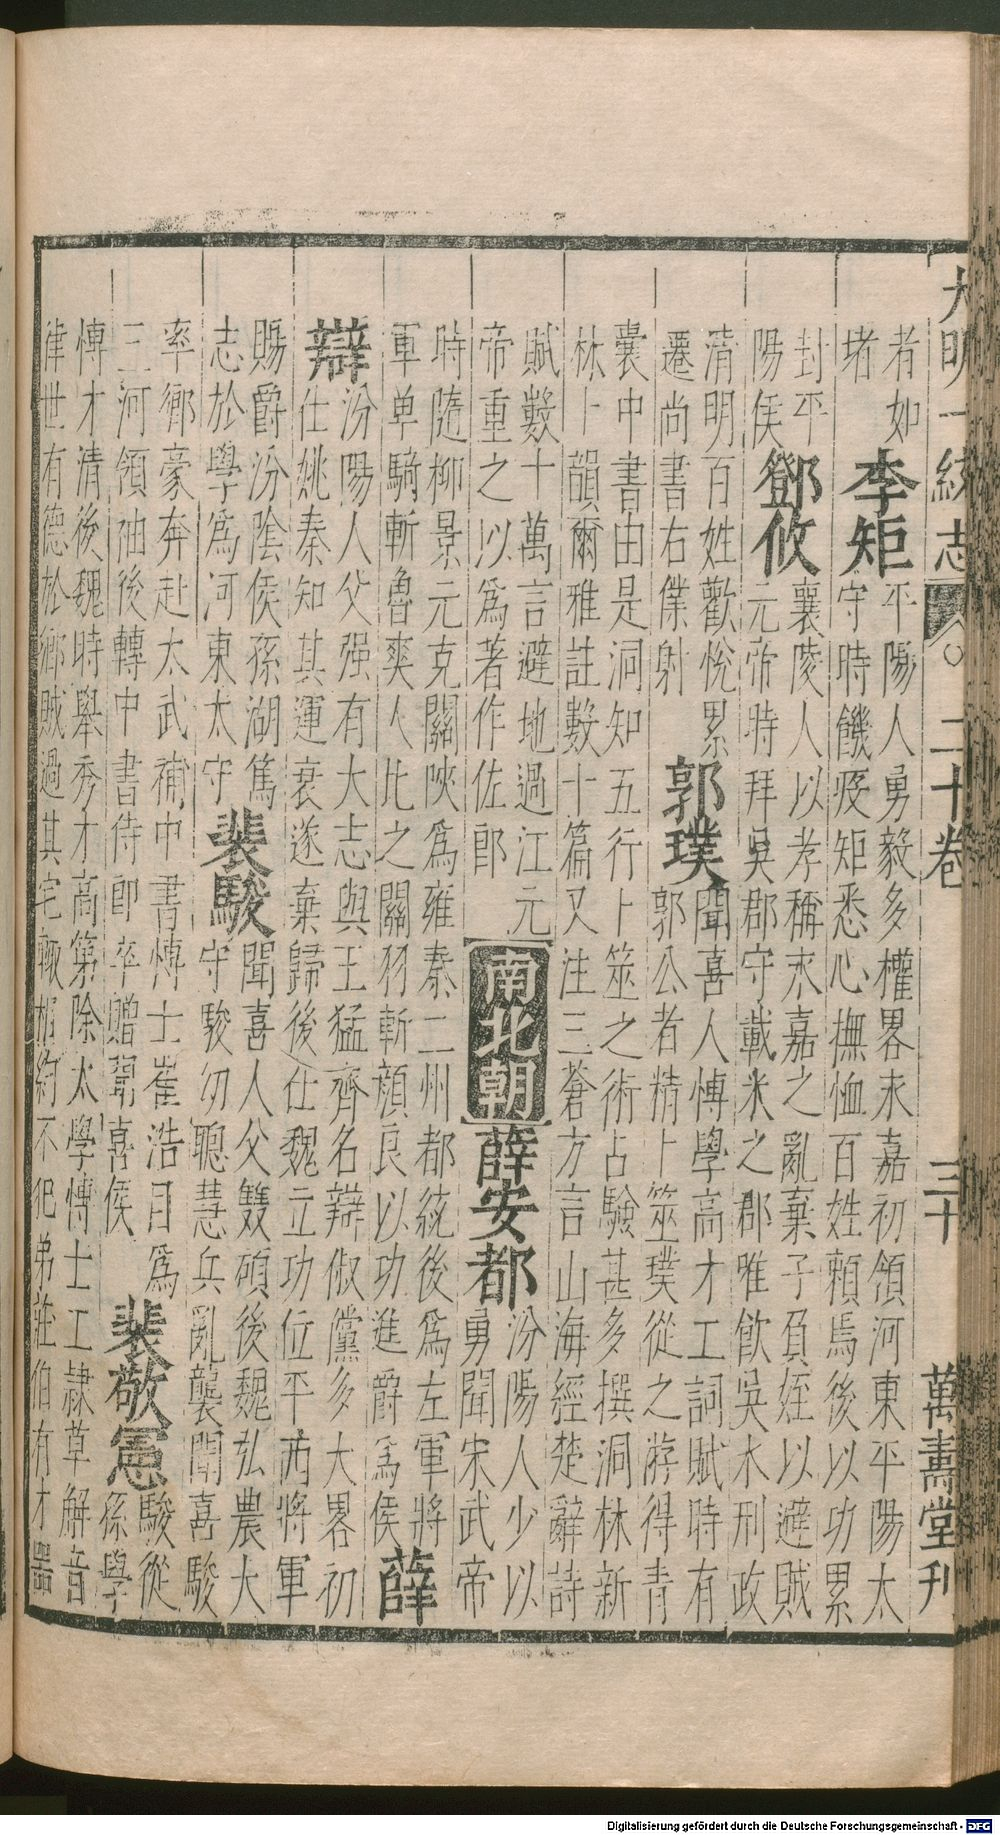 大明一統志 二十卷 三十 萬壽堂刋
者如
堵
李矩
平陽人勇毅多權畧永嘉初領河東平陽太
守時饑疫矩悉心撫恤百姓賴焉後以功累
封平
陽侯
鄧攸
襄陵人以孝稱永嘉之亂棄子負姪以避賊
元帝時拜吳郡守載米之郡唯飲吳水刑政
清明百姓歡悅累
遷尚書右僕射
郭璞
聞喜人博學高才工詞賦時有
郭公者精卜筮璞從之游得青
囊中書由是洞知五行卜筮之術占驗甚多撰洞林新
林卜韻爾雅註數十篇又注三蒼方言山海經楚辭詩
賦數十萬言避地過江元
帝重之以爲著作佐郎
南北朝
薛安都
汾陽人少以
勇聞宋武帝
時隨柳景元克關陜爲雍秦二州都統後爲左軍將
軍单騎斬魯爽人比之關羽斬顔良以功進爵爲侯
薛
辯
汾陽人父强有大志與王猛齊名辯俶儻多大畧初
仕姚秦知其運衰遂棄歸後仕魏立功位平西將軍
賜爵汾陰侯孫湖篤
志於學爲河東太守
裴駿
聞喜人父雙碩後魏弘農太
守駿幼聰慧兵亂襲聞喜駿
率鄉豪奔赴太武補中書博士崔浩目爲
三河領袖後轉中書待郎卒贈聞喜侯
裴敬憲
駿從
孫學
博才清後魏時舉秀才高第除太學博士工隷草解音
律世有德於鄉賊過其宅輙相約不犯弟莊伯有才器
Digitalisierung gefördert durch die Deutsche Forschungsgemeinschaft - DFG